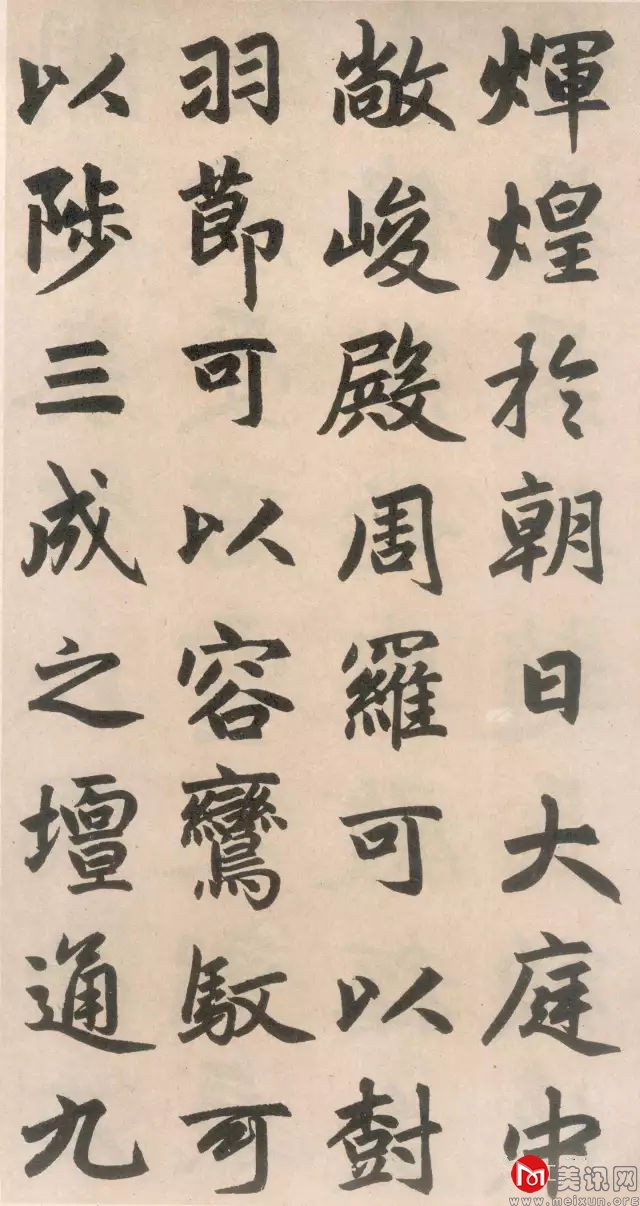 煇煌於朝日大庭中
敞峻殿周羅可以樹
羽節可以容鸞馭可
以陟三成之壇通九
美讯网
www.meixun.org